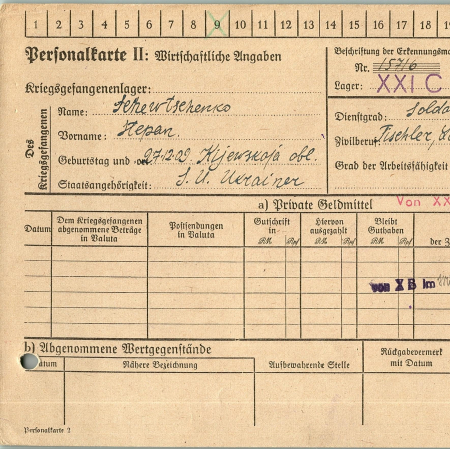 1 2 3 4 5 6 7 8 9 10 11 12 13 14 15 16 17 18 19
Personalkarte II: Wirtschaftliche Angaben
Beschriftung der Erkennungsma
Nr. 15716
Lager: XXI C
Kriegsgefangenenlager:
Des Kriegsgefangenen
Name: Schewtschenko
Vorname: Stepan
Geburtstag und 27.12.09. Kijewskaja obl.
Staatsangehörigkeit: S. U. Ukrainer
Dienstgrad: Solda
Zivilberuf: Tischler,
Grad der Arbeitsfähigkeit
a) Private Geldmittel
Von XX
Datum
Dem Kriegsgefangenen abgenommene Beträge in Valuta
Postsendungen in Valuta
Gutschrift in
RM Rpf
Hiervon ausgezahlt
RM Rpf
Bleibt Guthaben
RM Rpf
der 3
von X B km
b) Abgenommene Wertgegenstände
atum
Nähere Bezeichnung
Aufbewahrende Stelle
Rückgabevermerk mit Datum
Personalkarte 2